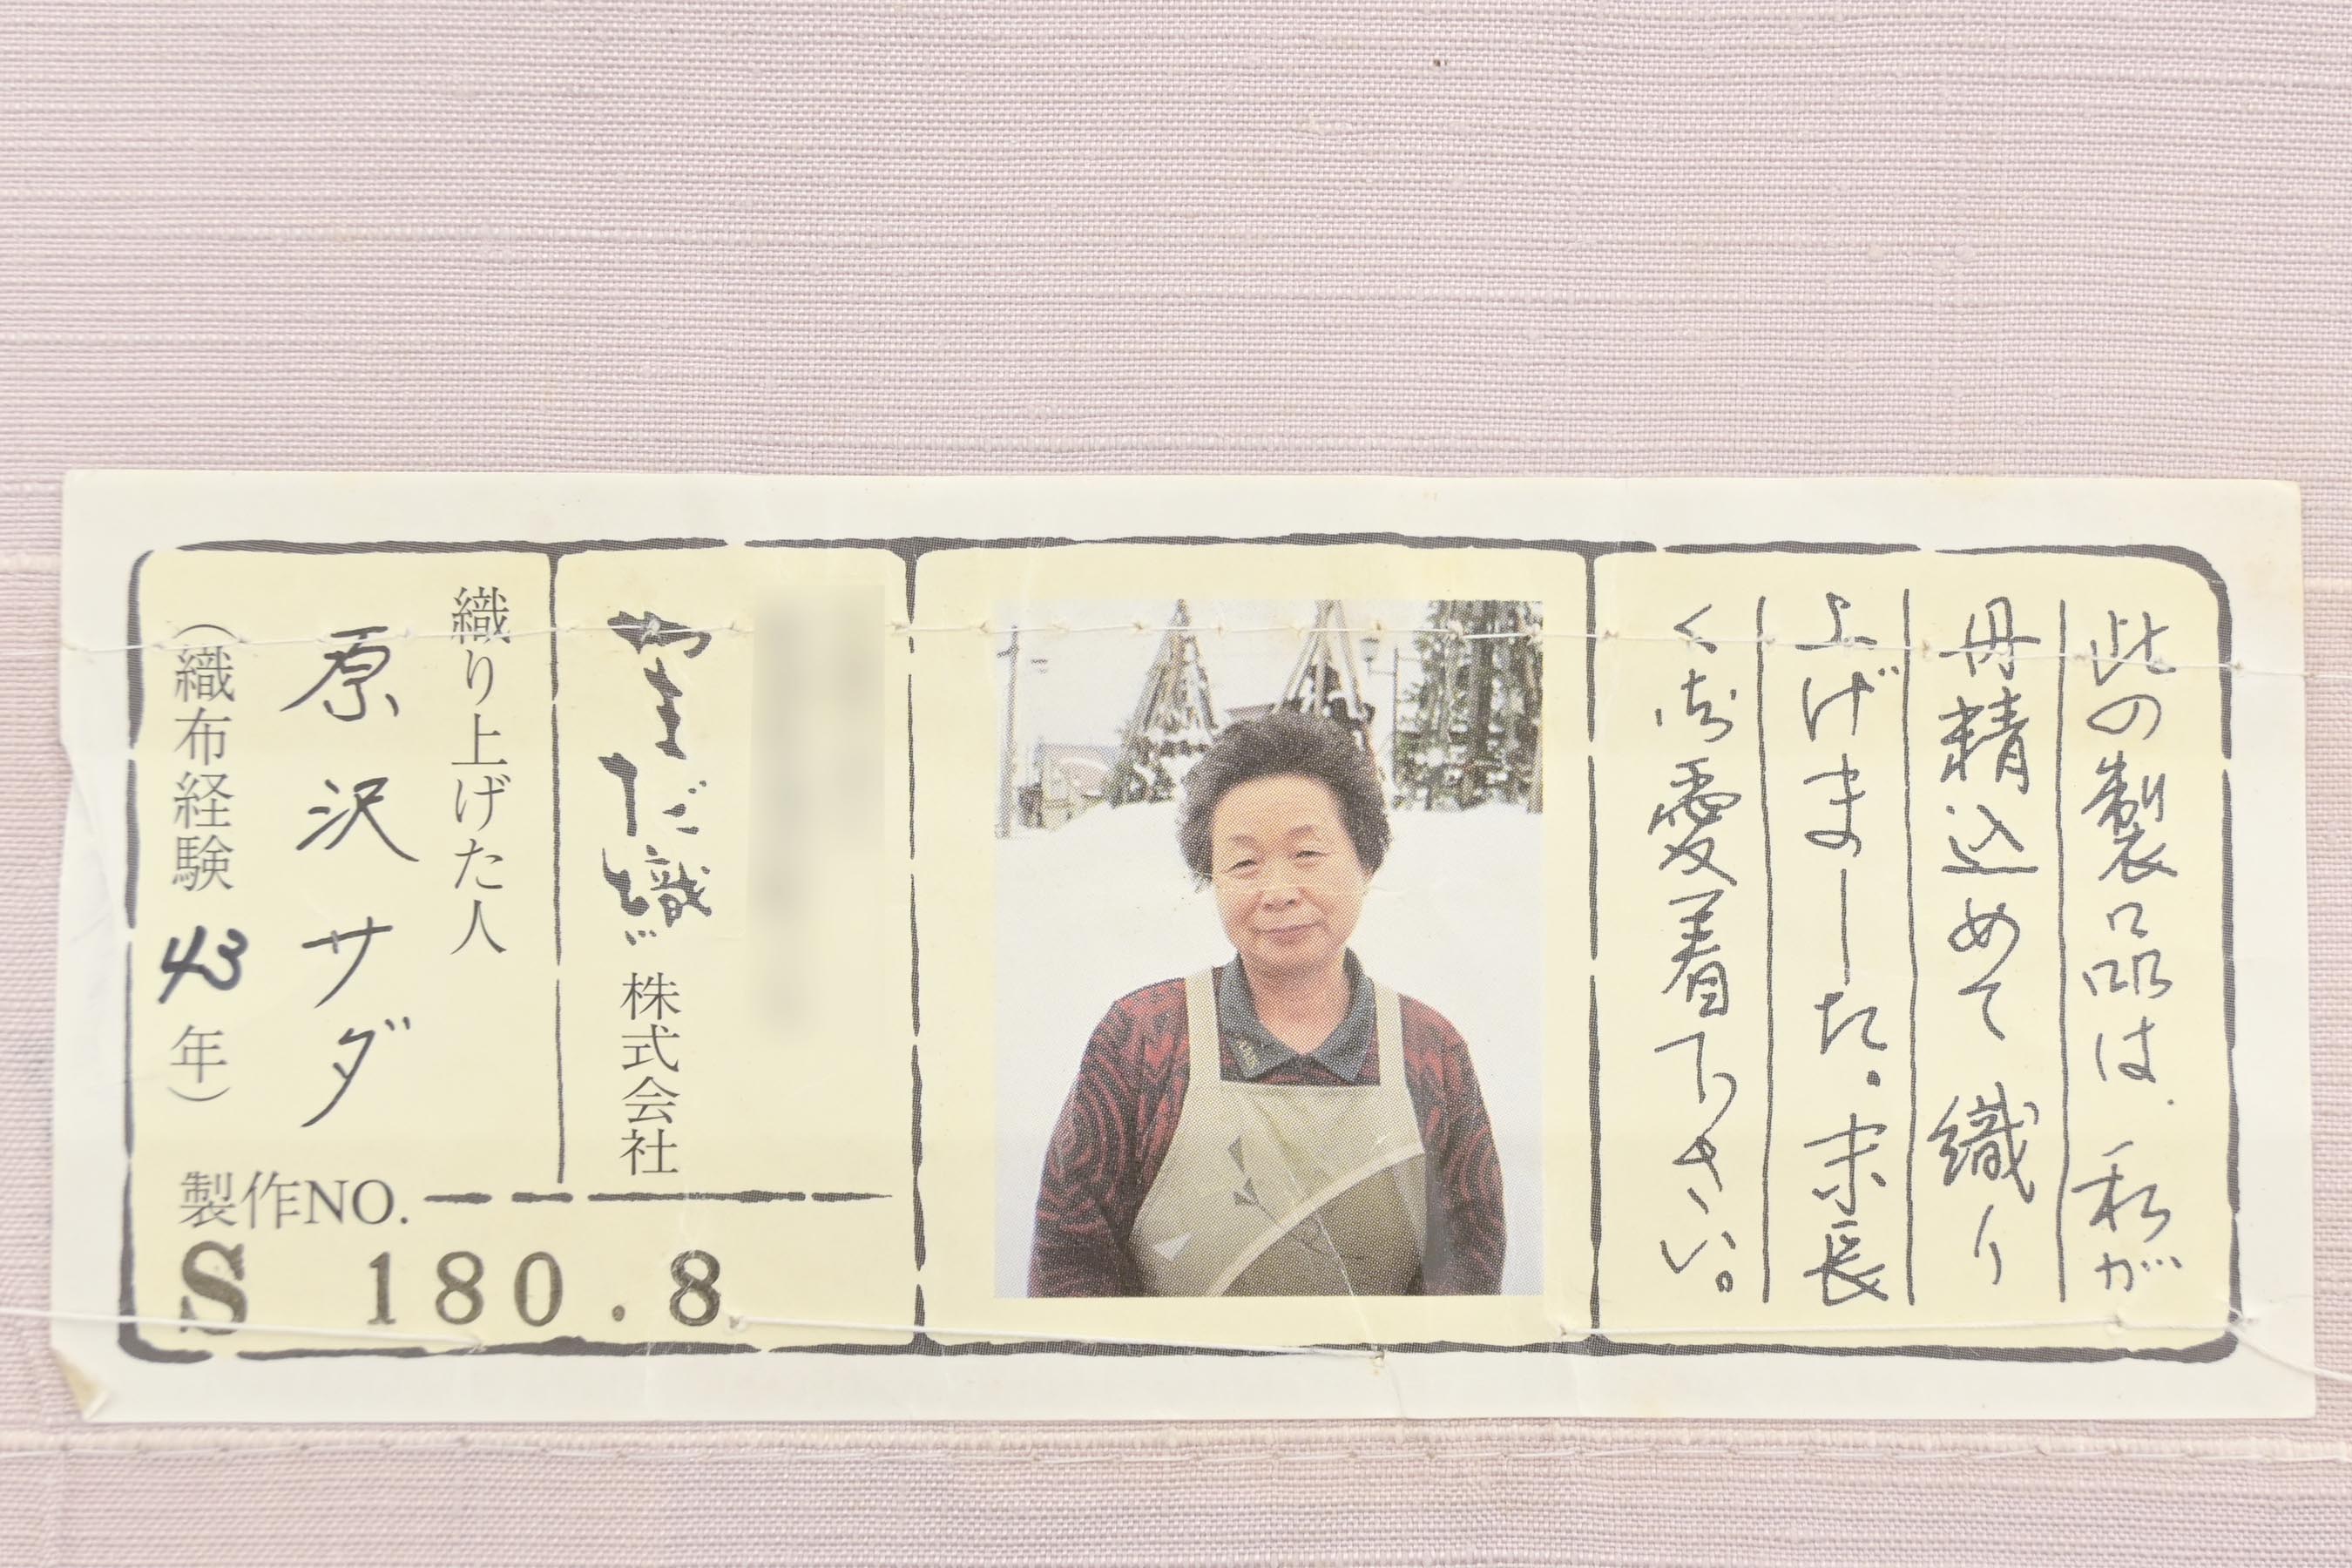 此の製品は、私が
丹精込めて織り
上げました。末長
く御愛着下さい。
やまだ織株式会社
織り上げた人
原沢サダ
(織布経験43年)
製作NO.
S 180.8